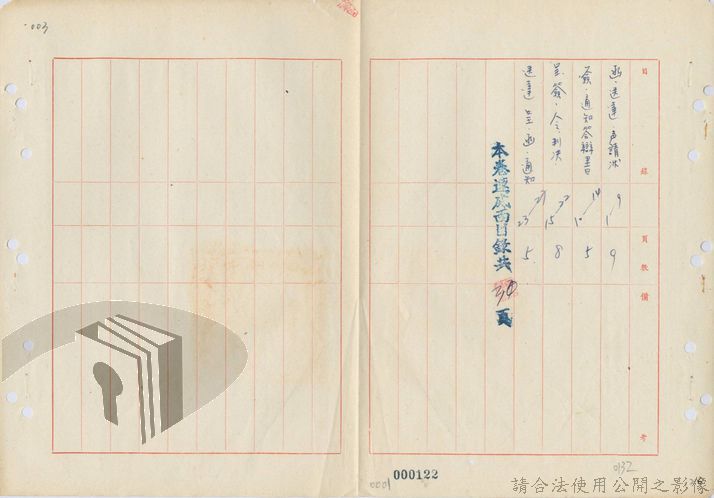 003
目錄 頁數 備考
函、送達、声請狀 1 9 9
簽、通知答辯書 10 14 5
呈簽、令判決 15 22 8
送達呈、函、通知 23 27 5
本卷連底面目錄共30頁
000122
0001
0132
請合法使用公開之影像